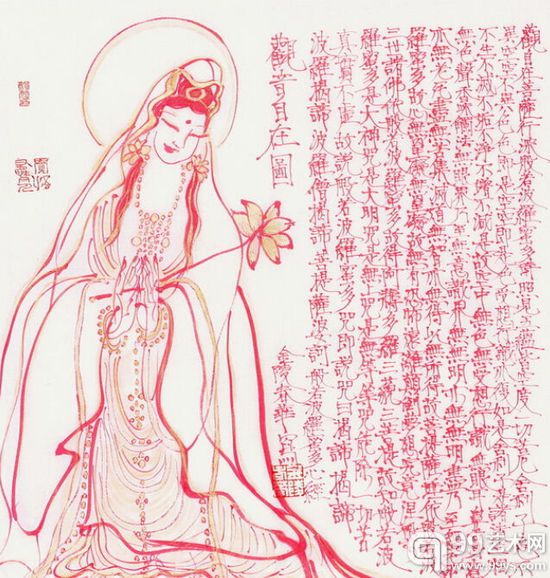 觀自在菩薩行深般若波羅蜜多時照見五蘊皆空度一切苦厄舍利子色不
異空空不異色色即是空空即是色受想行識亦復如是舍利子是諸法
不生不滅不垢不淨不增不減是故空中無色無受想行識無眼耳鼻
無色聲香味觸法無眼界乃至無意識界無無明亦無無明盡乃至
亦無老死盡無苦集滅道無智亦無得以無所得故菩提薩埵依般若波
羅蜜多故心無罣礙無罣礙故無有恐怖遠離顛倒夢想究竟涅槃
三世諸佛依般若波羅蜜多故得阿耨多羅三藐三菩提故知般若波
羅蜜多是大神咒是大明咒是無上咒是無等等咒能除一切苦
真實不虛故說般若波羅蜜多咒即說咒曰揭諦揭諦
波羅揭諦波羅僧揭諦菩提薩婆訶般若波羅蜜多心經
金陵春華寫
觀音自在圖
99艺术网
www.99ys.com